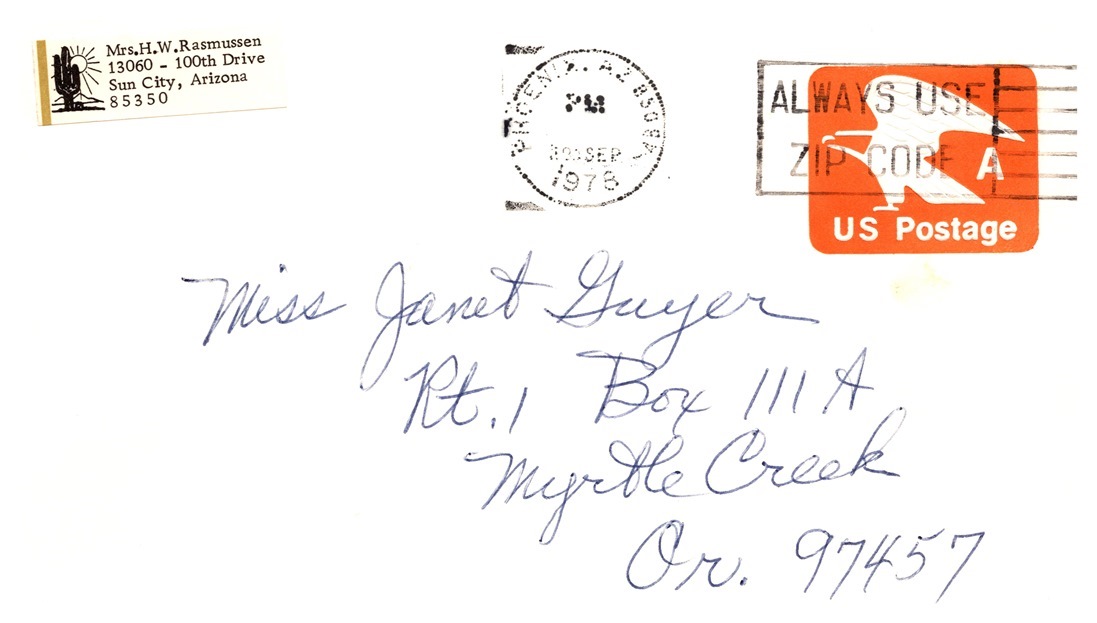 Mrs.H.W.Rasmussen
13060 - 100th Drive
Sun City, Arizona
85350
PHOENIX, AZ 850
PM
SEP
1978
ALWAYS USE
ZIP CODE
A
US Postage
Miss Janet Guyer
Rt. 1 Box 111 A
Myrtle Creek
Or. 97457